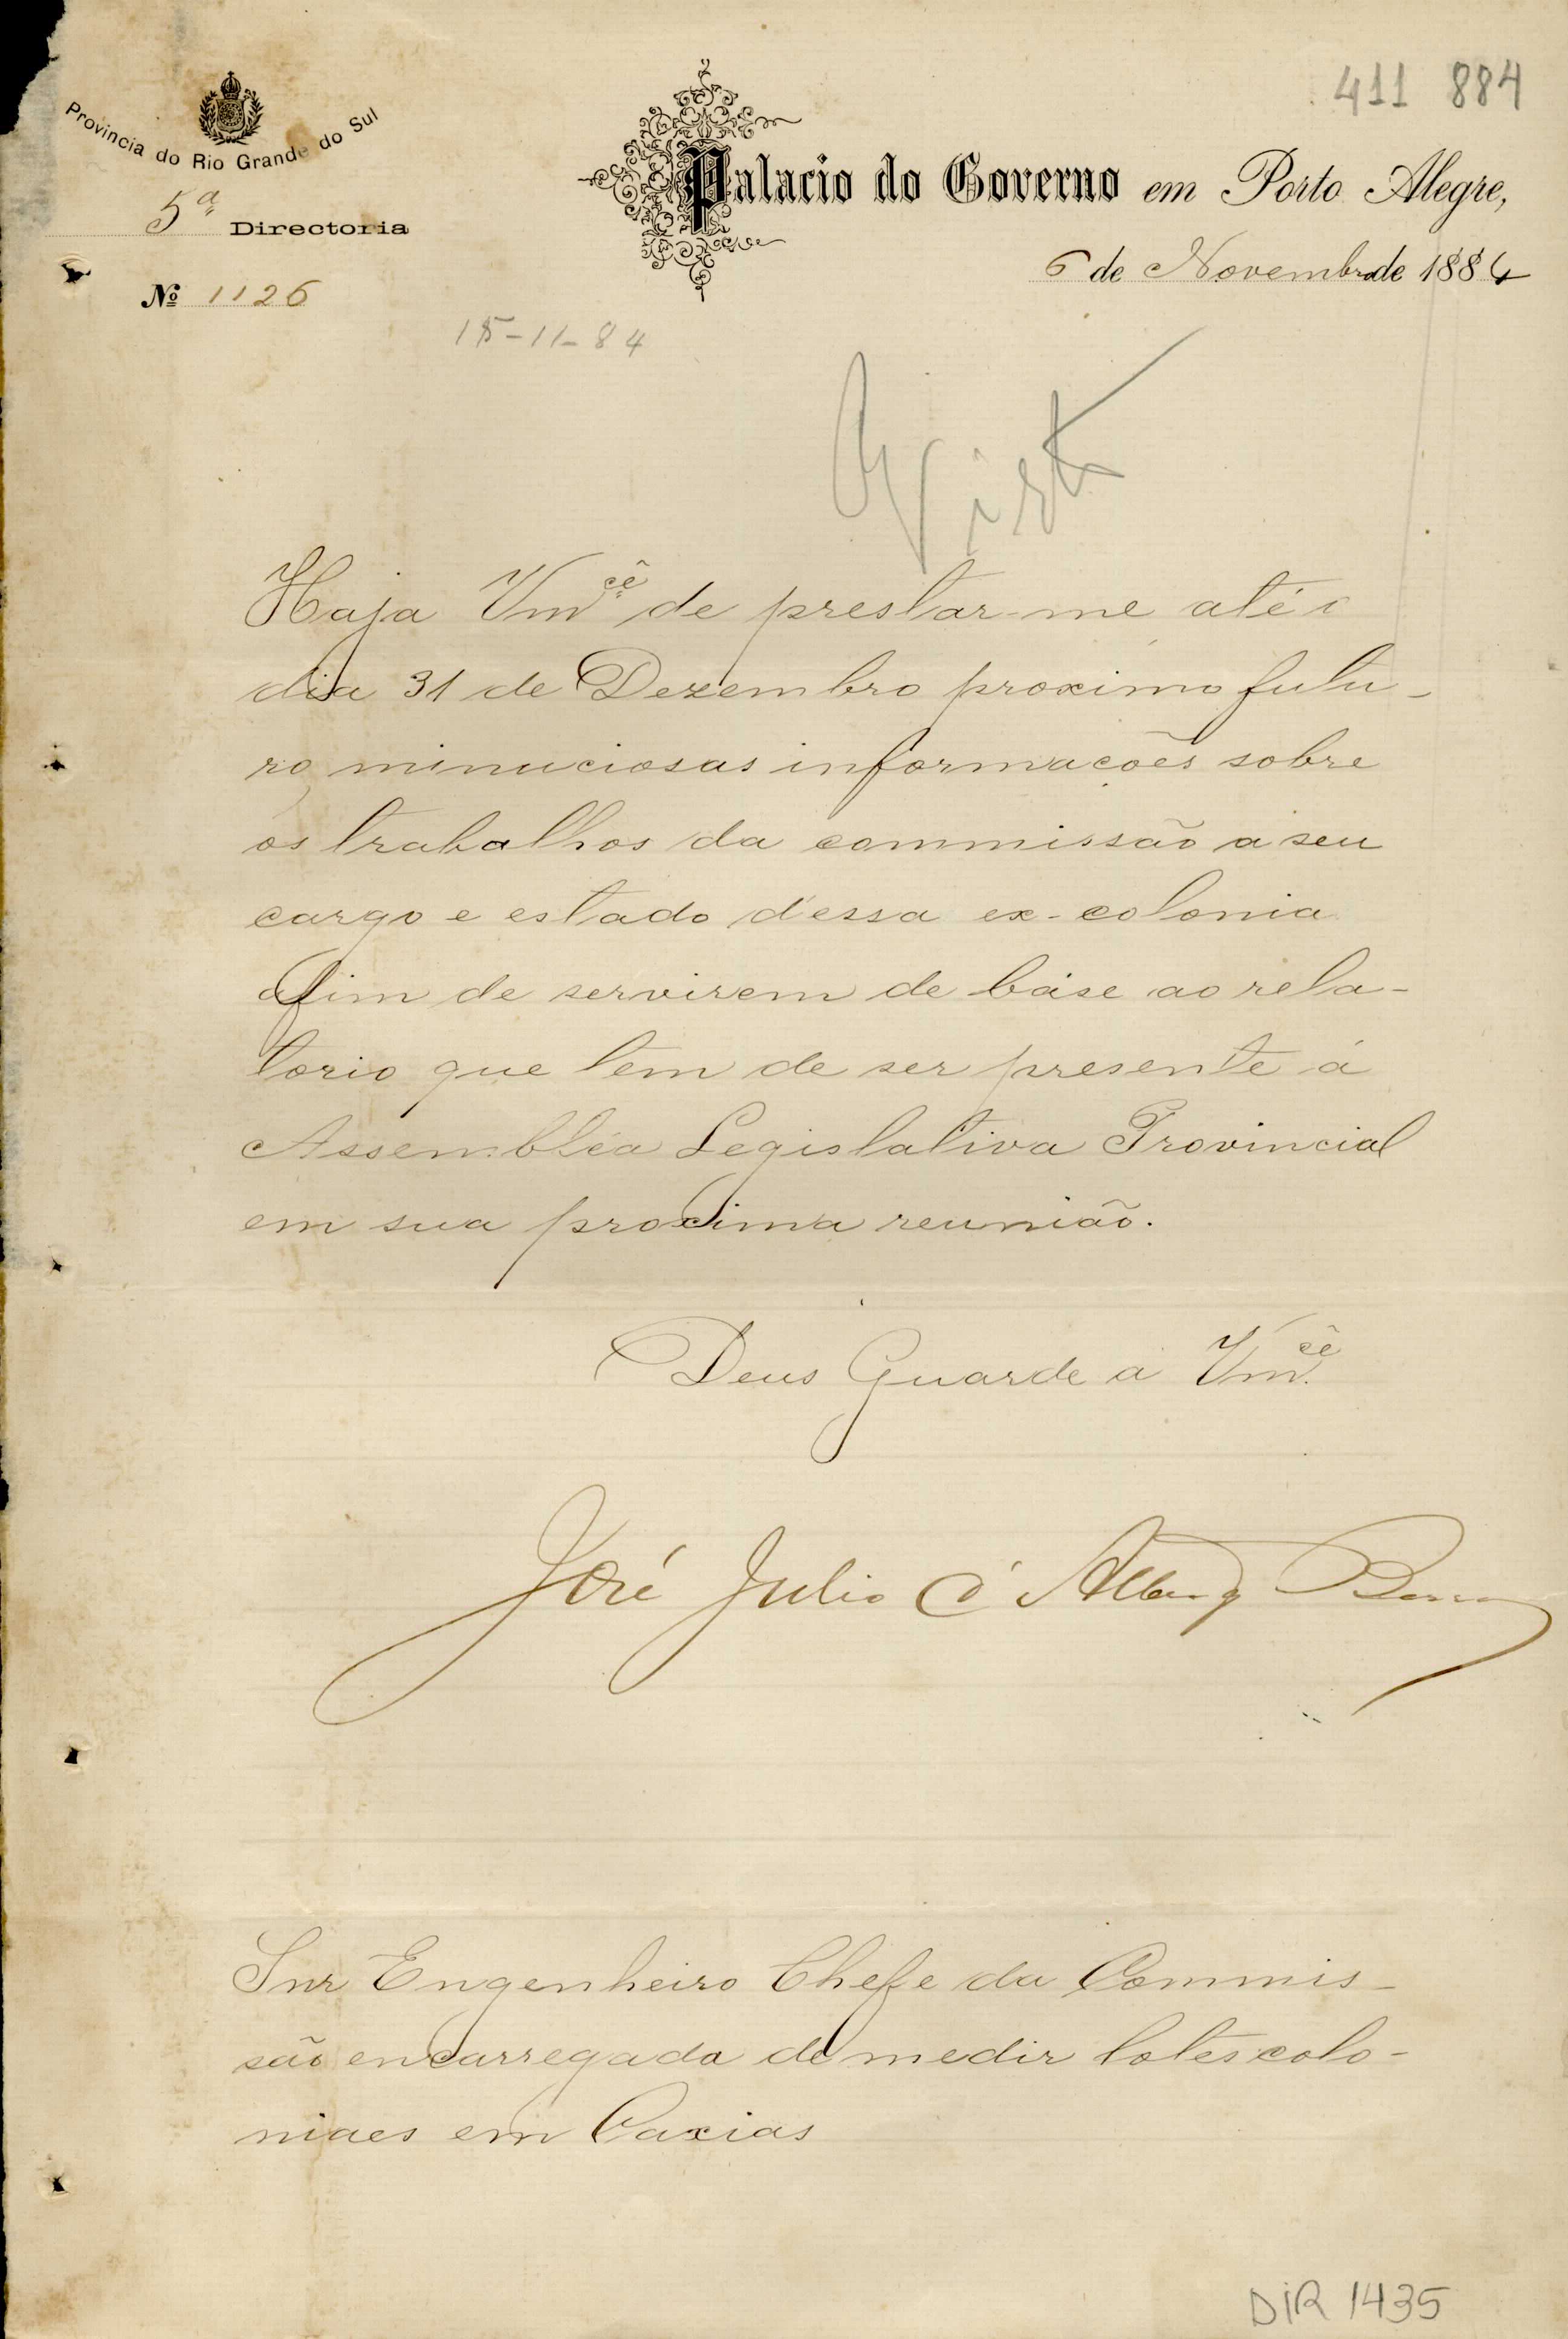 411 884
Provincia do Rio Grande do Sul
5ª Directoria
Nº 1126
Palacio do Governo em Porto Alegre,
6 de Novembro de 1884
15-11-84
Visto
Haja Vmcê de prestar-me até o
dia 31 de Dezembro proximo futu-
ro minuciosas informações sobre
os trabalhos da commissão a seu
cargo e estado d'essa ex-colonia
afim de servirem de base ao rela-
torio que tem de ser presente á
Assembléa Legislativa Provincial
em sua proxima reunião.
Deus Guarde a Vmcê
José Julio d'Albuq Barros
Snr Engenheiro Chefe da Commis-
são encarregada de medir lotes colo-
niaes em Caxias
DIR 1435